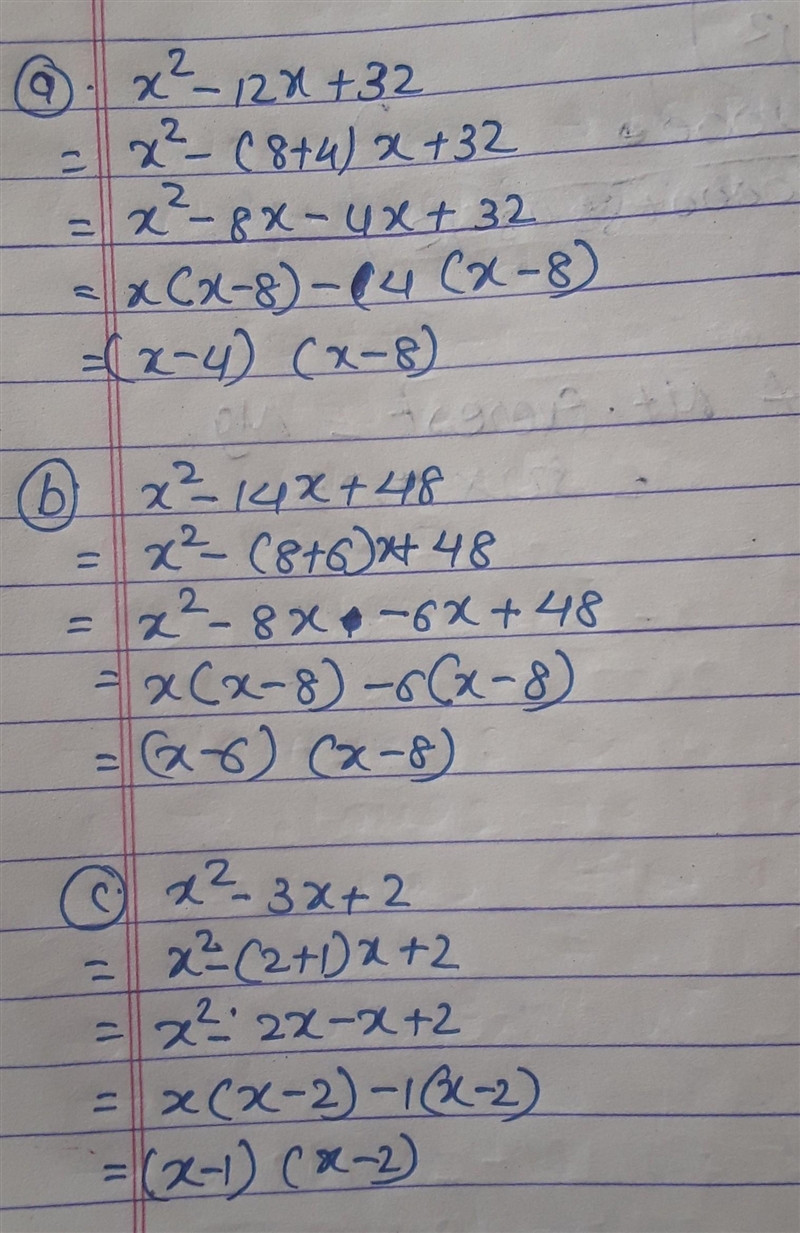 (a). x² - 12x + 32
= x² - (8+4) x + 32
= x² - 8x - 4x + 32
= x(x-8) - (4 (x-8)
= (x-4) (x-8)
(b) x² - 14x + 48
= x² - (8+6)x + 48
= x² - 8x - 6x + 48
= x(x-8) - 6(x-8)
= (x-6) (x-8)
(c). x² - 3x + 2
= x² - (2+1)x + 2
= x² - 2x - x + 2
= x(x-2) - 1(x-2)
= (x-1) (x-2)